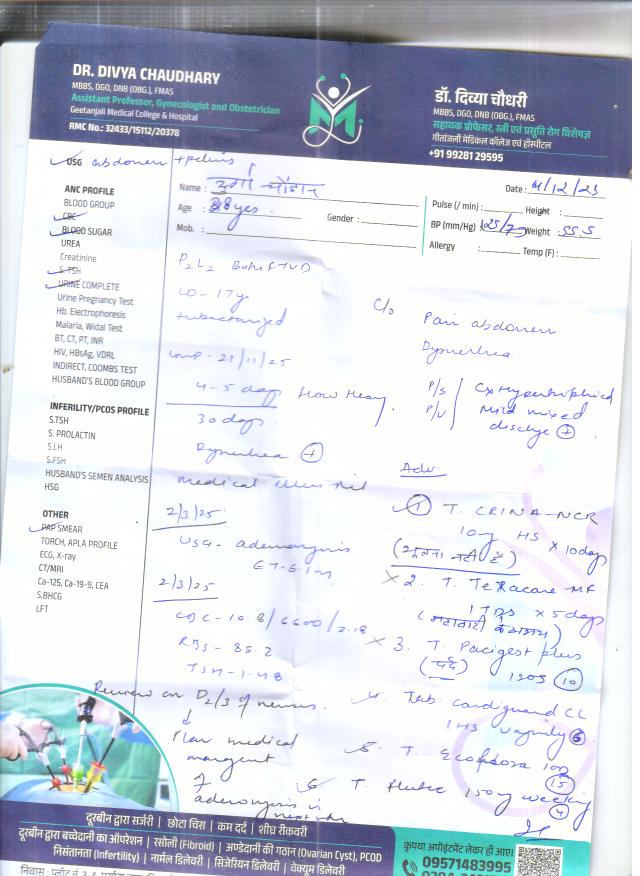 DR. DIVYA CHAUDHARY
MBBS, DGO, DNB (OBG.), FMAS
Assistant Professor, Gynecologist and Obstetrician
Geetanjali Medical College & Hospital
RMC No.: 32433/15112/20378
डॉ. दिव्या चौधरी
MBBS, DGO, DNB (OBG.), FMAS
सहायक प्रोफेसर, स्त्री एवं प्रसूति रोग विशेषज्ञ
गीतांजली मेडिकल कॉलेज एवं हॉस्पीटल
+91 99281 29595
USG abdomen + pelvis
Name :
Age : 38 yes.
Gender :
Mob. :
Date : 4/12/25
Pulse (/ min) : Height :
BP (mm/Hg) 125/75 Weight : 55.5
Allergy : Temp (F) :
ANC PROFILE
BLOOD GROUP
CBC
BLOOD SUGAR
UREA
Creatinine
S.TSH
URINE COMPLETE
Urine Pregnancy Test
Hb. Electrophoresis
Malaria, Widal Test
BT, CT, PT, INR
HIV, HBsAg, VDRL
INDIRECT, COOMBS TEST
HUSBAND'S BLOOD GROUP
INFERILITY/PCOS PROFILE
S.TSH
S. PROLACTIN
S.LH
S.FSH
HUSBAND'S SEMEN ANALYSIS
HSG
OTHER
PAP SMEAR
TORCH, APLA PROFILE
ECG, X-ray
CT/MRI
Ca-125, Ca-19-9, CEA
S.BHCG
LFT
P2L2 Both FTVD
LD - 17 yr
LMP - 21/11/25
4-5 days flow Heavy.
30 days
+
2/3/25
USG - adenomyosis
2/3/25
CBC - 10.8/6600/2.18
RBS - 85.2
TSH - 1.48
Review on D2/3 of menses.
Plan medical
of
adenomyosis in
C/o Pain abdomen
P/S Cx Hypertrophied
P/V Mild mixed
+
Adv.
1 T. CRINA-NCR
10mg HS x 10 days
2. T. Texacare-MF
1 TDS x 5 days
3. T. Pacigest plus
(दर्द) 1 SOS 10
4. Tab. Candiguard CL
1 HS Vaginally 6
5. T. Ecoflora 1 OD
15
6. T. 150mg weekly
4
दूरबीन द्वारा सर्जरी | छोटा चिरा | कम दर्द | शीघ्र रीकवरी
दूरबीन द्वारा बच्चेदानी का ऑपरेशन | रसोली (Fibroid) | अण्डेदानी की गठान (Ovarian Cyst), PCOD
निसंतानता (Infertility) | नार्मल डिलेवरी | सिजेरियन डिलेवरी | वेक्यूम डिलेवरी
कृपया अपॉइंटमेंट लेकर ही आएं।
09571483995